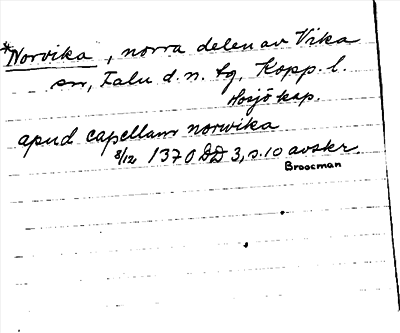 *Norvika, norra delen av Vika
sn, Falu d. n. tg, Kopp. l.
Hosjö kap.
apud capellam norwika
8/12 1370 DD 3, s. 10 avskr.
Broocman